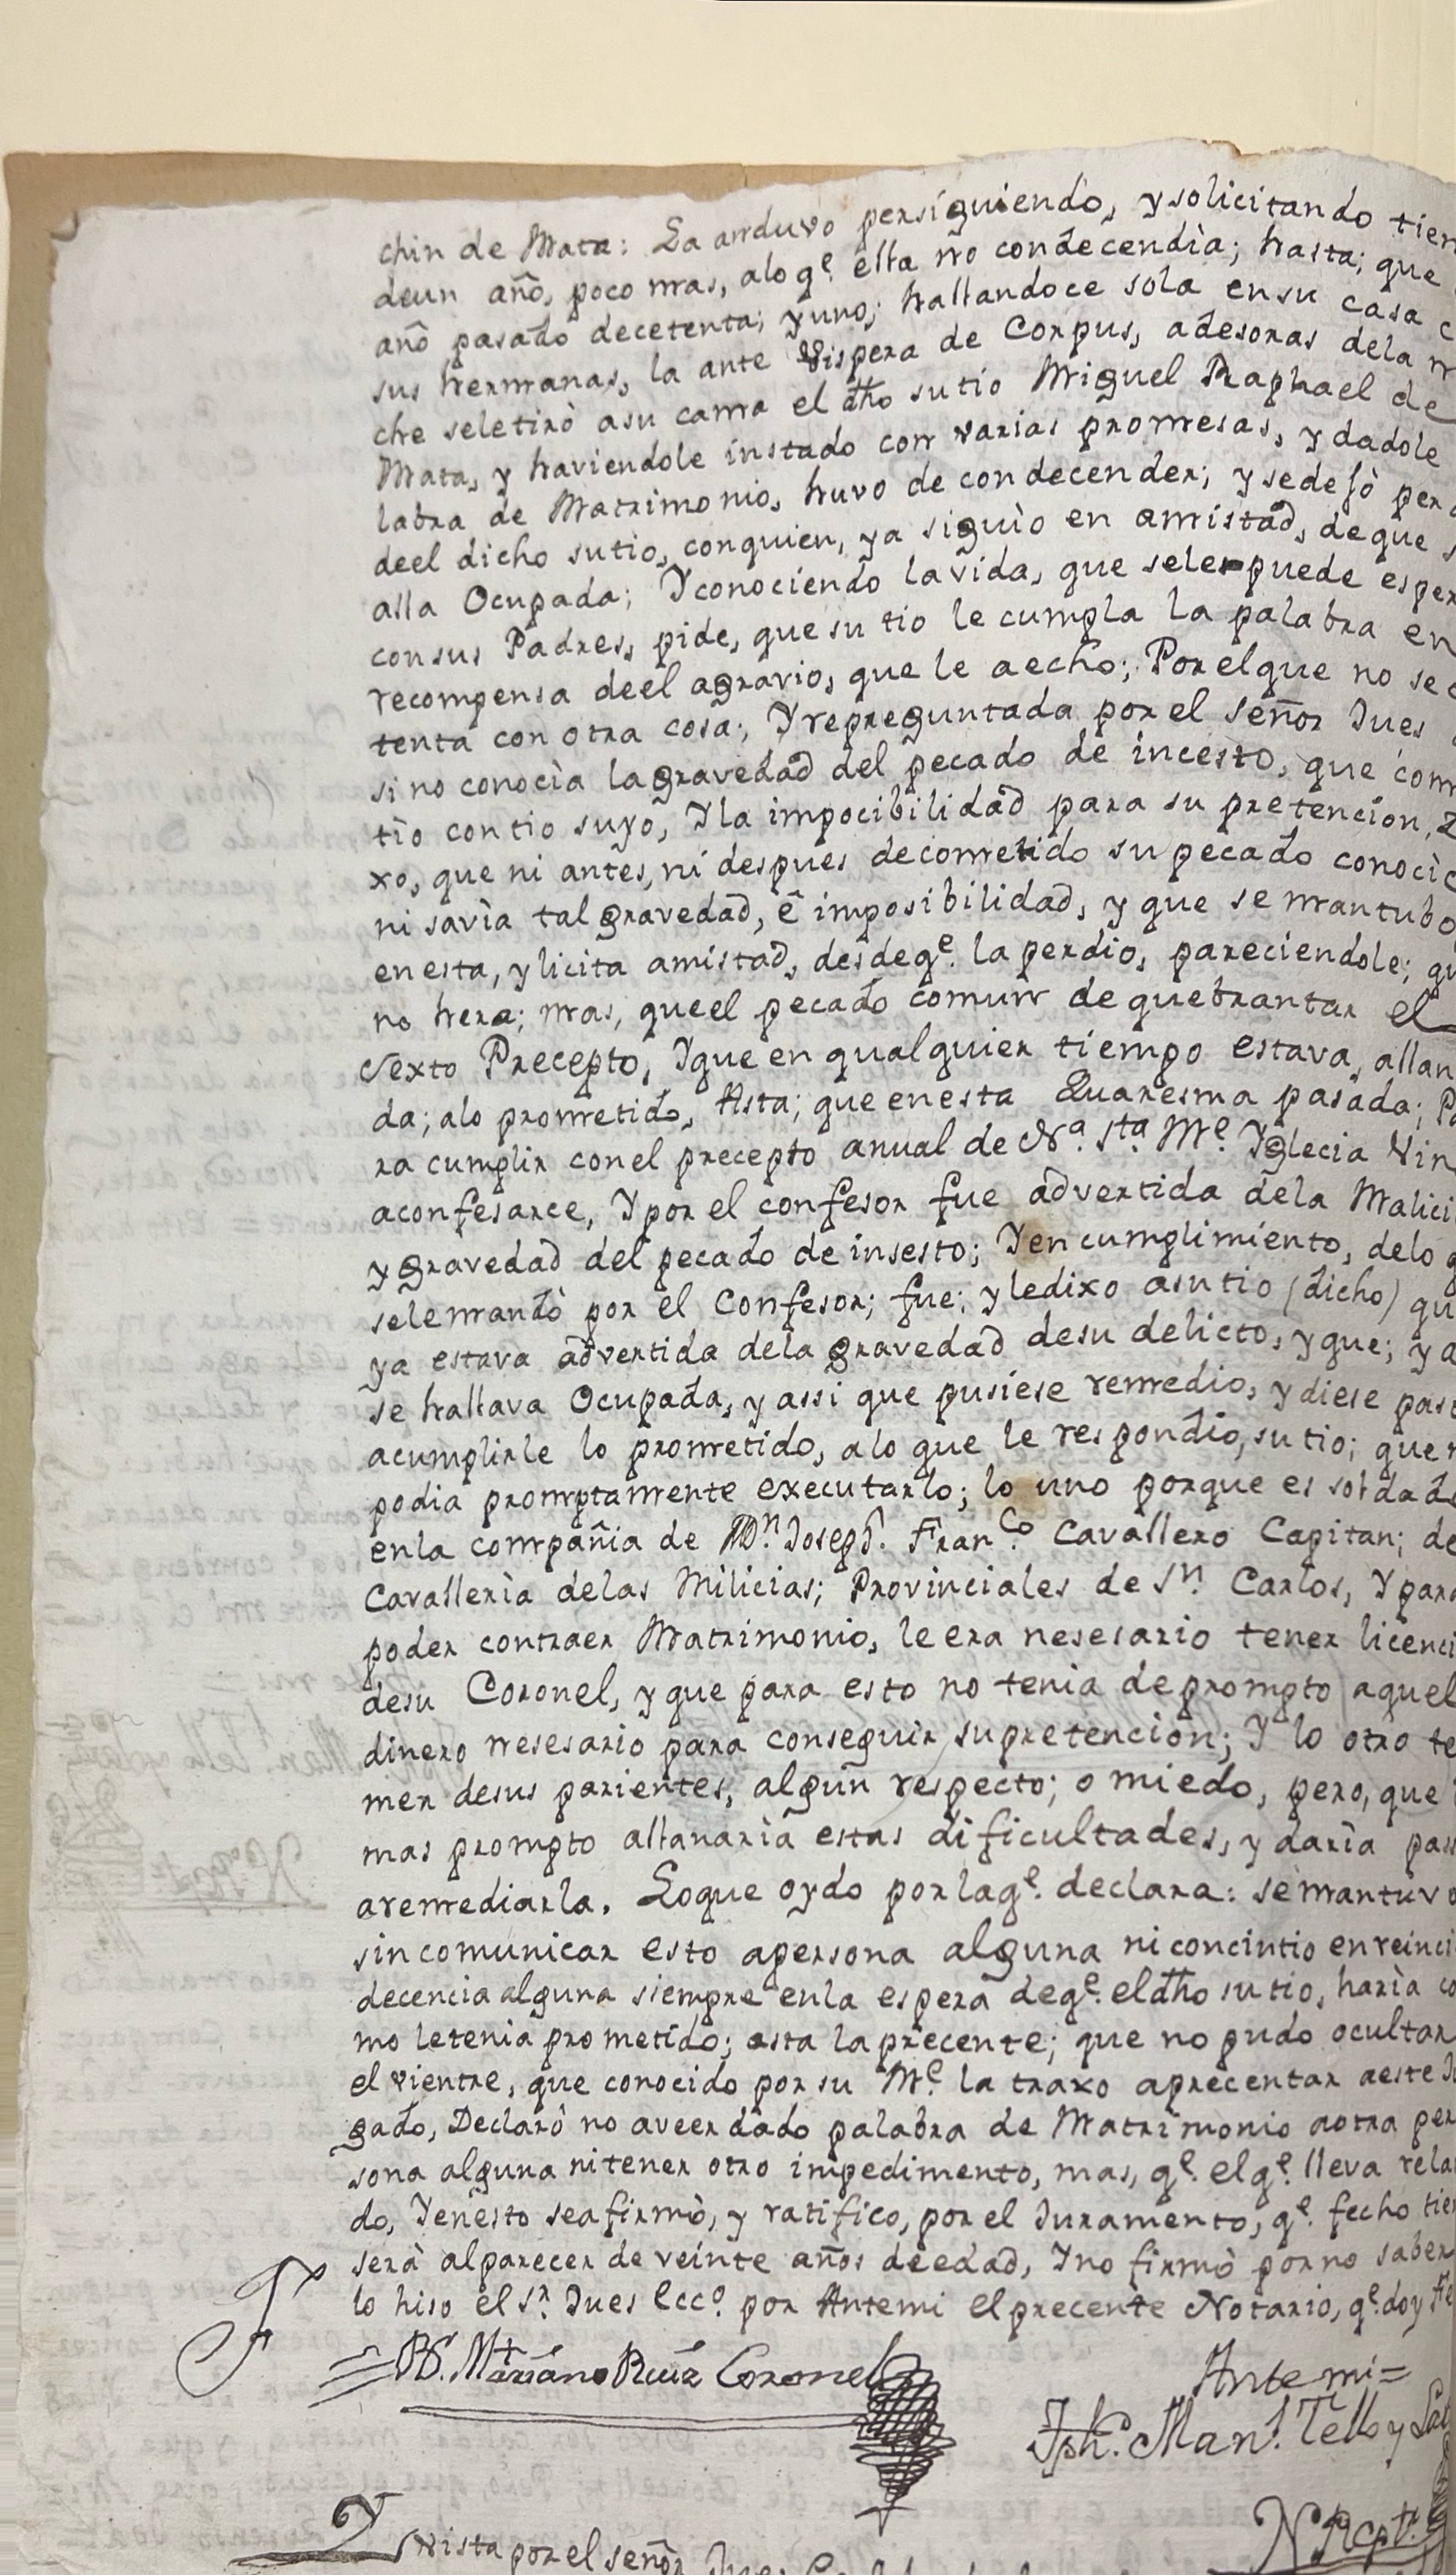 chin de Mata: La anduvo persiguiendo, y solicitando tien
deun año, poco mas, alo q.e ella no condecendìa; hasta; que
año pasado decetenta; yuno; hallandoce sola ensu casa c
sus hermanas, la ante Vispera de Corpus, adesoras dela n
che seletirò asu cama el dho sutio Miguel Raphael de
Mata, y haviendole instado con varias promesas, y dadole
labra de Matrimonio, huvo de condecender; y sedejò per
deel dicho sutio, conquien, ya siguìo en amistad, deque s
alla Ocupada; Y conociendo lavida, que sele puede esper
consus Padres, pide, que su tio le cumpla la palabra en
recompensa deel agravio, que le aecho; Por elque no se c
tenta con otra cosa; Y repreguntada por el señor Jues
si no conocìa lagravedad del pecado de incesto, que com
tìo contio suyo, Y la impocibilidad para su pretencion,
xo, que ni antes, ni despues decometido supecado conocìc
ni savìa tal gravedad, ê imposibilidad, y que se mantubo
enesta, ylicita amistad, desdeq.e la perdio, pareciendole; qu
no hera; mas, queel pecado comun de quebrantar el
Sexto Precepto, Y que en qualquier tiempo estava, allan
da; alo prometido, Asta; que enesta Quaresma pasada; Pa
ra cumplir conel precepto anual de N.a S.ta M.e Yglecia Vin
aconfesarce, Y por el confesor fue advertida dela Malici
y gravedad del pecado de insesto; Y en cumplimiento, delo q
selemandò por el Confesor; fue; yledixo asutio (dicho) qu
ya estava advertida dela gravedad desu delicto, yque; ya
se hallava Ocupada, y assi que pusiese remedio, y diese pas
acumplirle lo prometido, alo que le respondio, su tio; que n
podia promptamente executarlo; lo uno porque es soldado
enla compañia de D.n Joseph. Fran.co Cavallero Capitan; de
Cavallerìa delas Milicias; Provinciales de S.n Carlos, Y para
poder contraer Matrimonio, le era nesesario tener licenci
desu Coronel, y que para esto no tenia deprompto aquel
dinero nesesario para conseguir supretencion; Y lo otro te
mer desus parientes, algun respecto; o miedo, pero, que
mas prompto allanarìa estas dificultades, y darìa pas
aremediarla. Loque oydo por laq.e declara: semantuvo
sincomunicar esto apersona alguna ni concintio enreinci
decencia alguna siempre enla espera deq.e eldho sutio, harìa co
mo letenia prometido; asta laprecente; que no pudo ocultar
el vientre, que conocido por su M.e la traxo aprecentar aeste Ju
gado, Declarò no aveer dado palabra de Matrimonio aotra per
sona alguna nitener otro impedimento, mas, q.e elq.e lleva rela
do, Y enesto seafirmò, y ratifico, por el Juramento, q.e fecho tien
serà alparecer de veinte años deedad, Y no firmò porno saber
lo hiso el S.r Jues Ecc.o por Antemi el precente Notario, q.e doy Fe
B.r Mariano Ruiz Coronel
Ante mi=
Jph. Man.l Tello y
N. Rept.
Y vista por el señor Jues